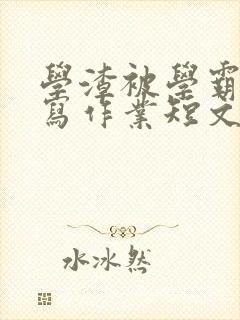 學渣被學霸
寫作業短文
水冰然